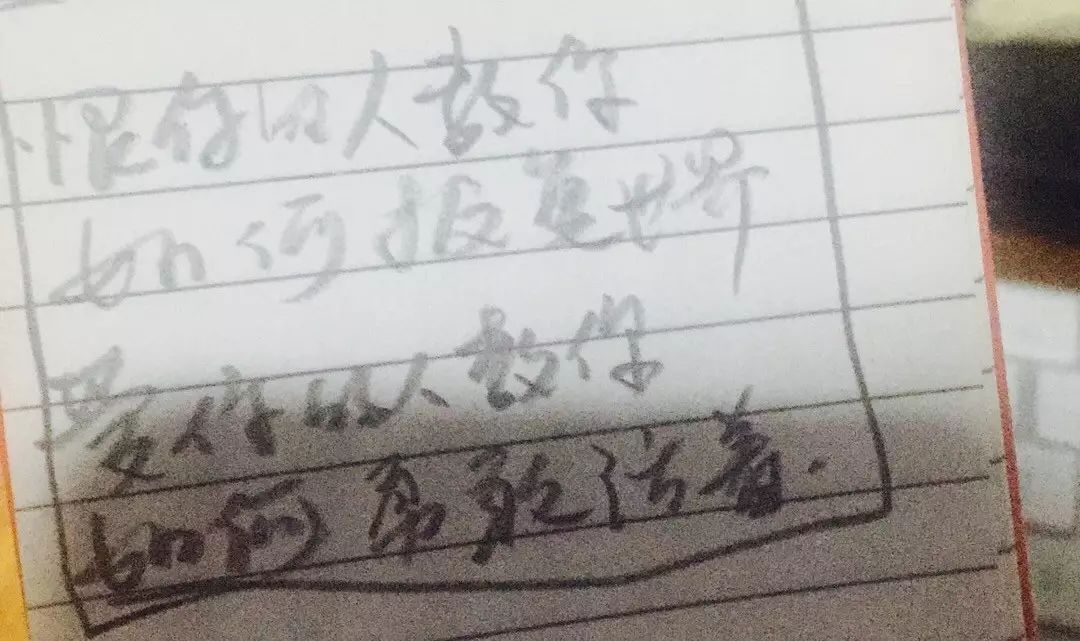 恨你的人教你
如何报复世界
爱你的人教你
如何勇敢活着.